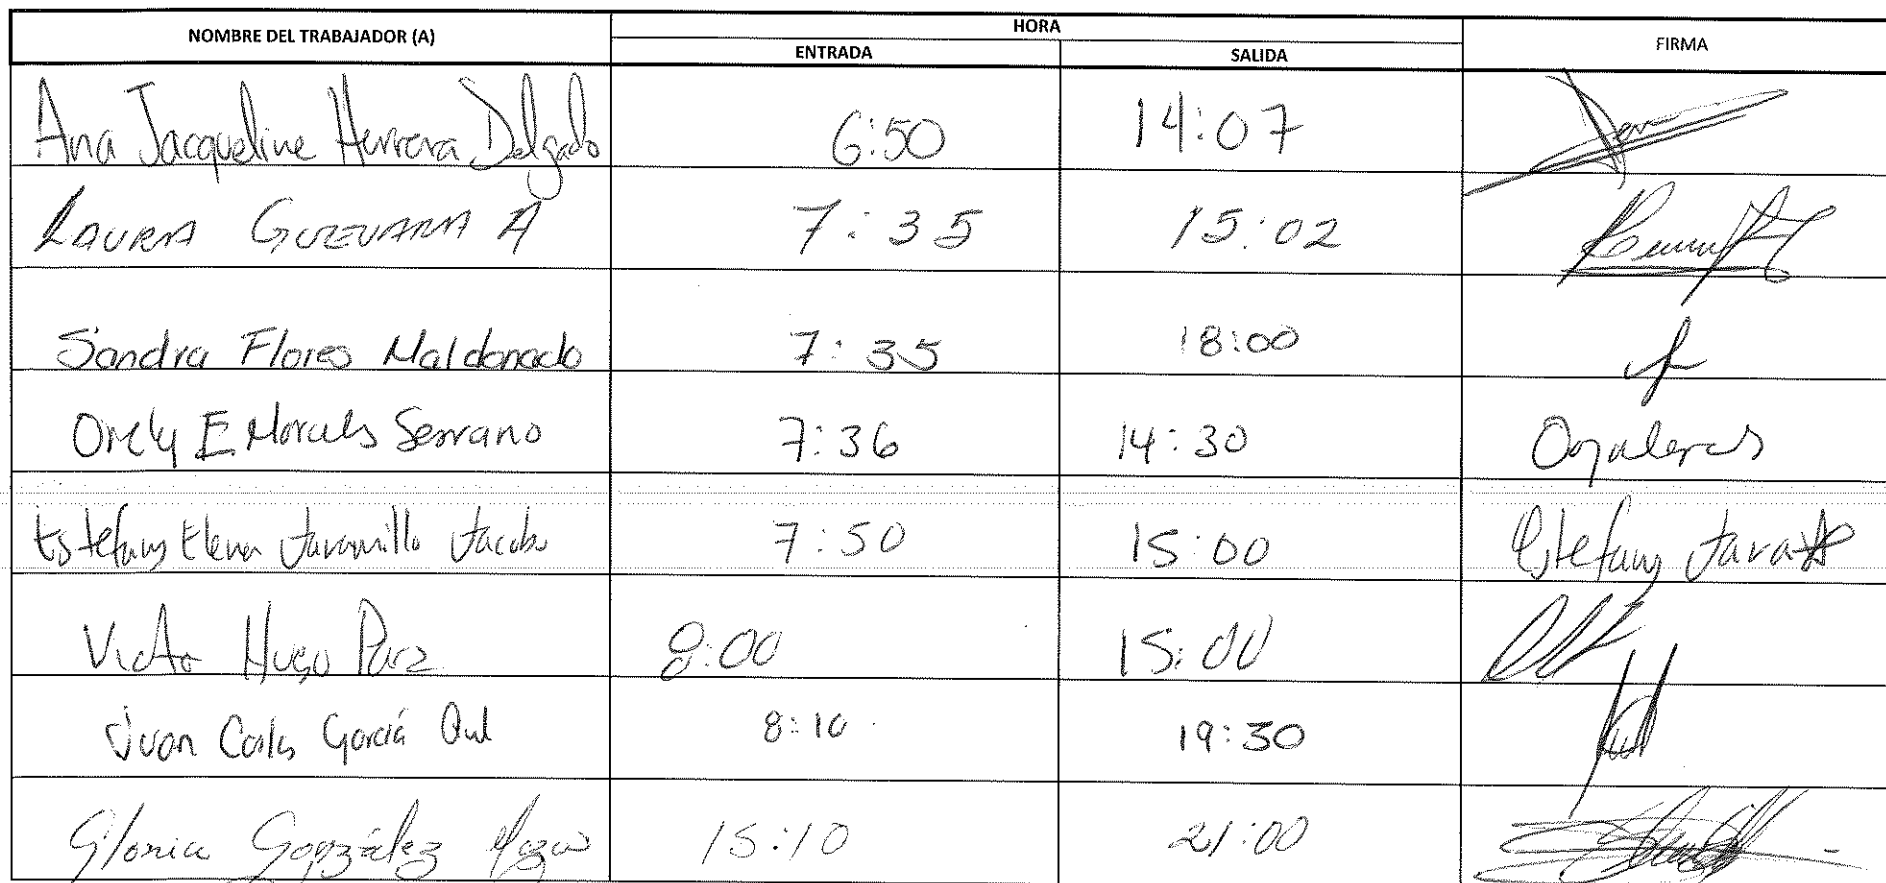 NOMBRE DEL TRABAJADOR (A) HORA FIRMA
ENTRADA SALIDA
Ana Jacqueline Herrera Delgado 6:50 14:07
LAURA GUEVARA A 7:35 15:02
Sandra Flores Maldonado 7:35 18:00
Orely E. Morales Serrano 7:36 14:30
Estefany Elena Jaramillo Jacobo 7:50 15:00 Estefany
Victor Hugo 8:00 15:00
Juan Carlos García 8:10 19:30
Gloria González 15:10 21:00